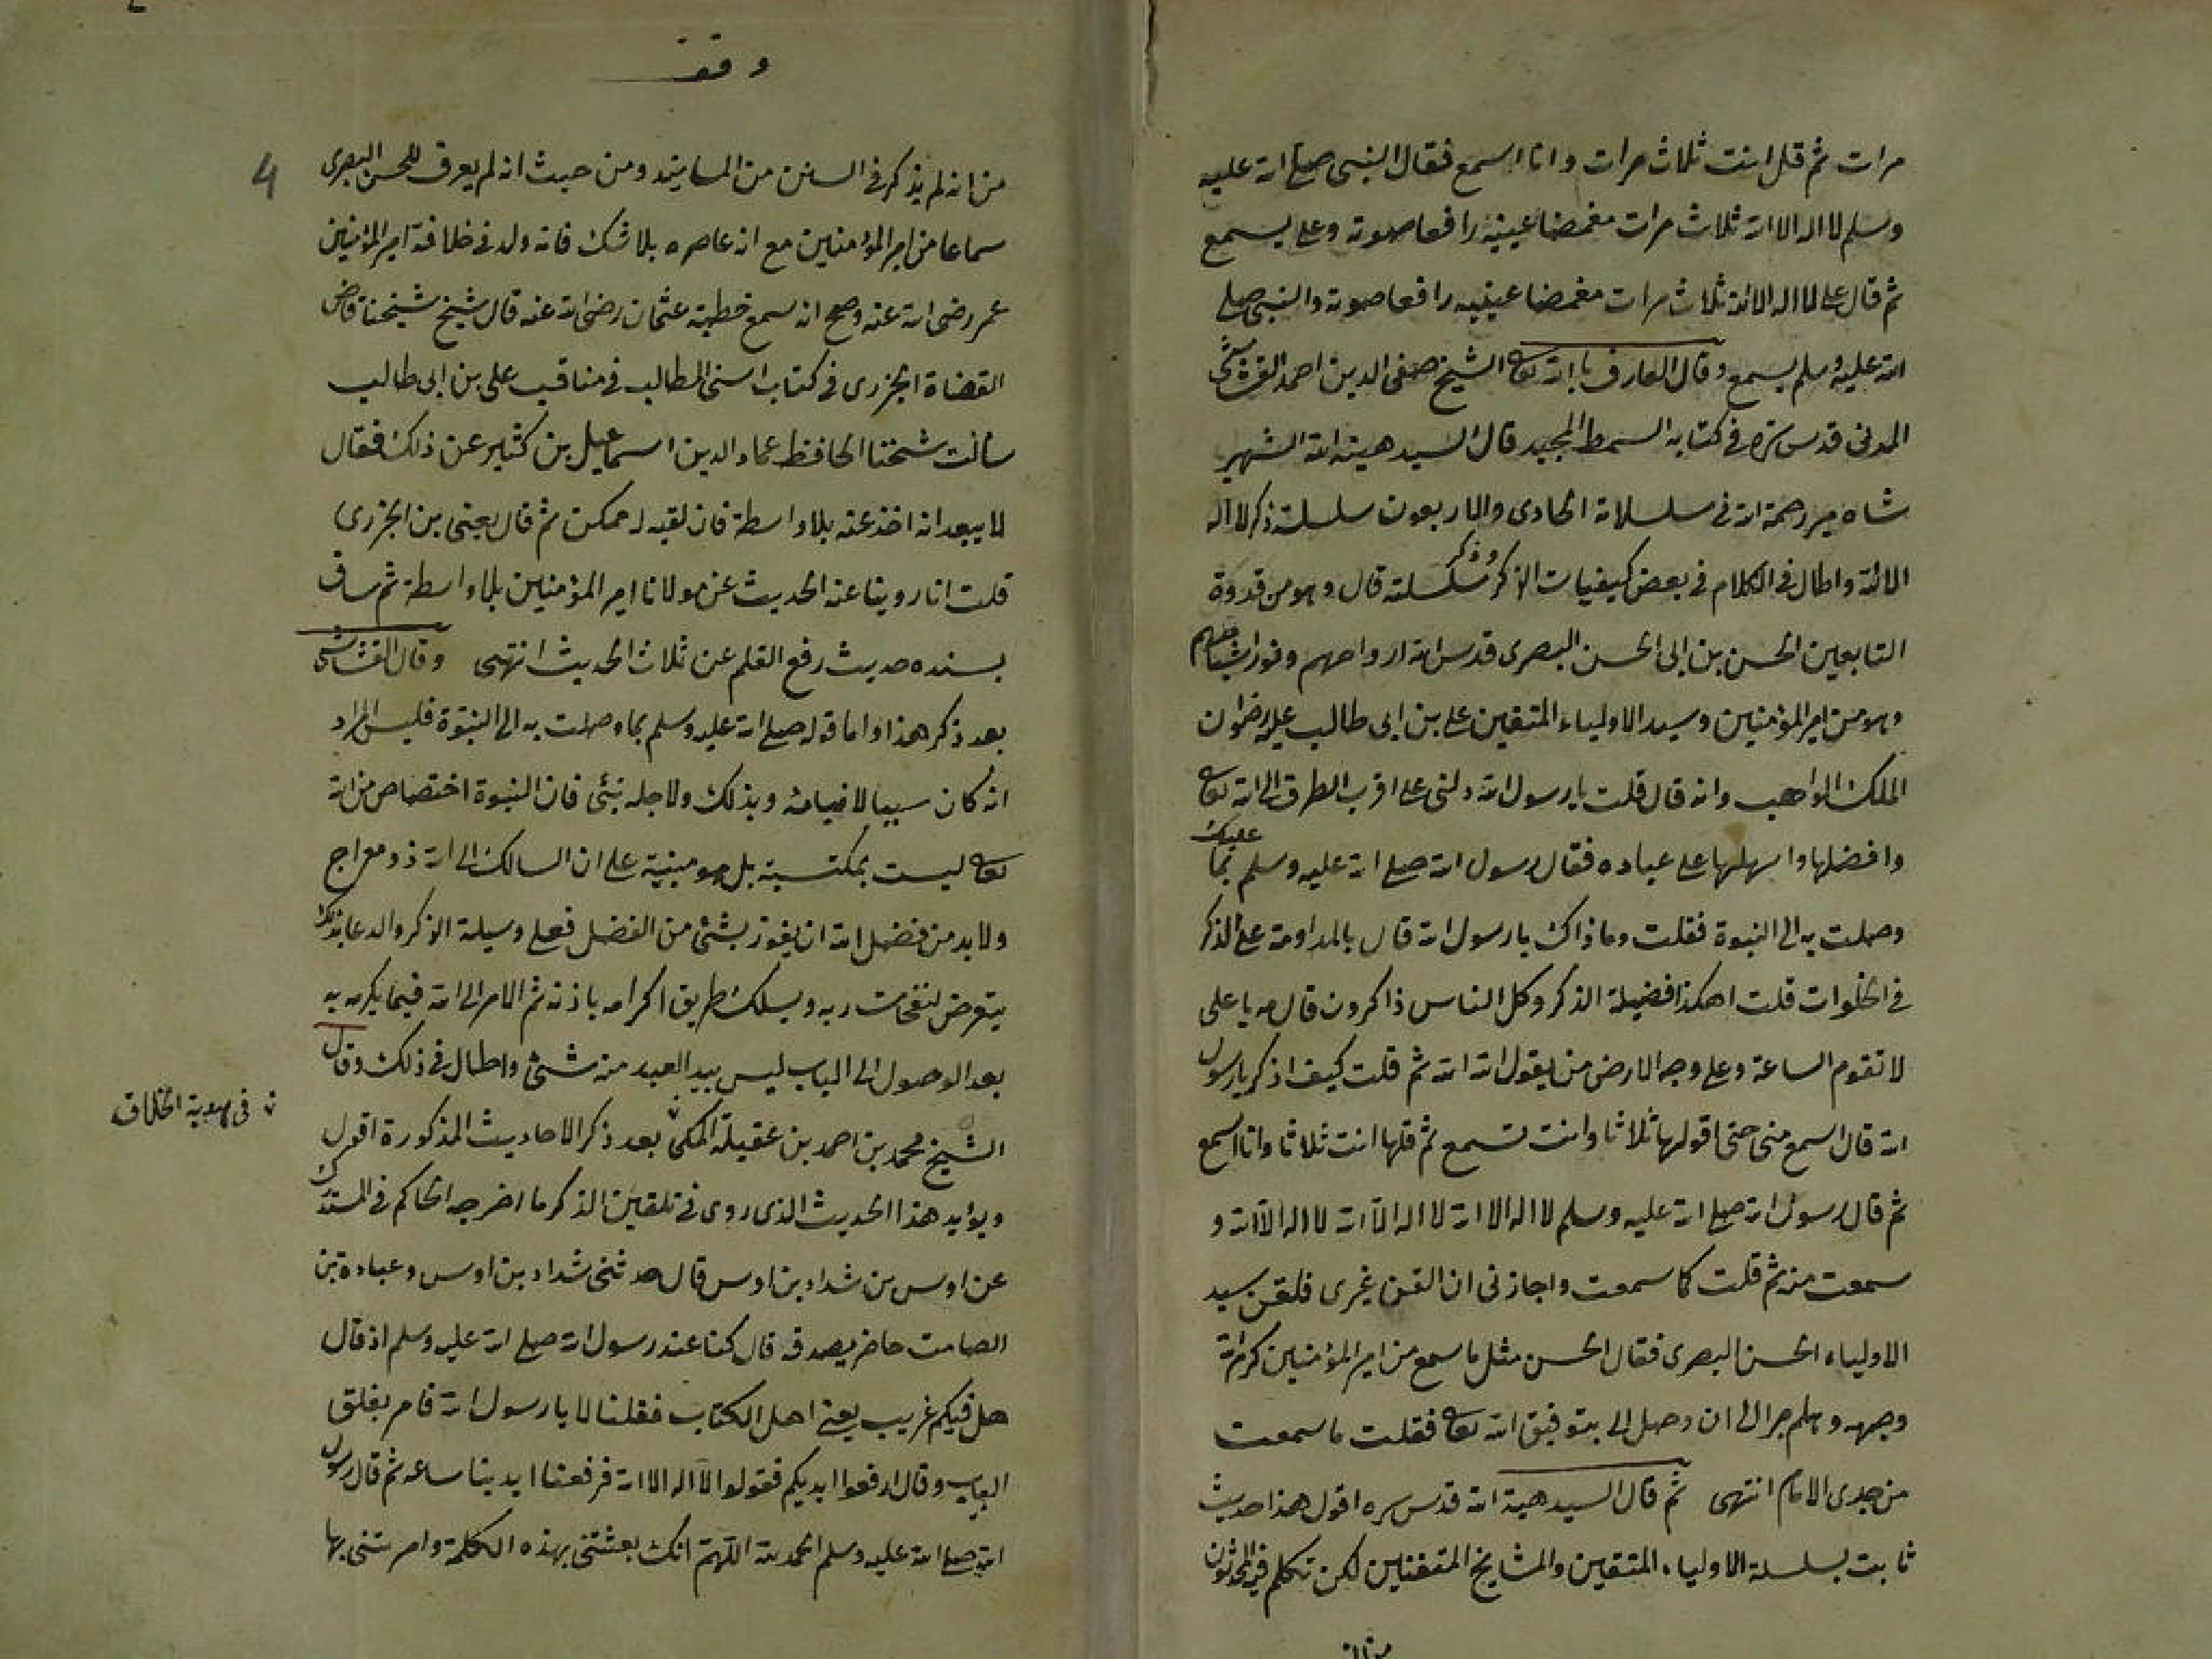 مرات ثم قل انت ثلاث مرات وانا اسمع فقال النبى صلى الله عليه
وسلم لا اله الا الله ثلاث مرات مغمضا عينيه رافعا صوته وعلى يسمع
ثم قال على لا اله الا الله ثلاث مرات مغمضا عينيه رافعا صوته والنبى صلى
الله عليه وسلم يسمع وقال العارف بالله تعالى الشيخ صفى الدين احمد القشاشى
المدنى قدس سره فى كتابه السمط المجيد قال السيد هبة الله الشهير
شاه مير رحمة الله فى سلسلاته الحادى والاربعون سلسلة ذكر لا اله
الا الله واطال فى الكلام فى بعض كيفيات الذكر وذكر سلسلته قال وهو من قدوة
التابعين الحسن بن ابى الحسن البصرى قدس الله ارواحهم ونور اشباحهم
وهو من امير المؤمنين وسيد الاولياء المتقين على بن ابى طالب عليه رضوان
الملك الواهب وانه قال قلت يا رسول الله دلنى على اقرب الطرق الى الله تعالى
وافضلها واسهلها على عباده فقال رسول الله صلى الله عليه وسلم عليك بما
وصلت به الى النبوة فقلت وما ذاك يا رسول الله قال بالمداومة على الذكر
فى الخلوات قلت اهكذا فضيلة الذكر وكل الناس ذاكرون قال مه يا على
لا تقوم الساعة وعلى وجه الارض من يقول الله الله ثم قلت كيف اذكر يا رسول
الله قال اسمع منى حتى اقولها ثلاثا وانت تسمع ثم قلها انت ثلاثا وانا اسمع
ثم قال رسول الله صلى الله عليه وسلم لا اله الا الله لا اله الا الله لا اله الا الله و
سمعت منه ثم قلت كما سمعت واجازنى ان القن غيرى فلقن سيد
الاولياء الحسن البصرى فقال الحسن مثل ما سمع من امير المؤمنين كرم الله
وجهه وهلم جرا الى ان وصل الى بتوفيق الله تعالى فقلت ما سمعت
من جدى الامام انتهى ثم قال السيد هبة الله قدس سره اقول هذا حديث
ثابت بسلسلة الاولياء المتقين والمشايخ المتقنين لكن تكلم فيه المحدثون
من انه
وقف
4
من انه لم يذكر فى السنن من المسانيد ومن حيث انه لم يعرف للحسن البصرى
سماعا من امير المؤمنين مع انه عاصره بلا شك فانه ولد فى خلافة امير المؤمنين
عمر رضى الله عنه وصح انه سمع خطبة عثمان رضى الله عنه قال شيخ شيخنا قاضى
القضاة الجزرى فى كتاب اسنى المطالب فى مناقب على بن ابى طالب
سألت شيخنا الحافظ عماد الدين اسماعيل بن كثير عن ذلك فقال
لا يبعد انه اخذ عنه بلا واسطة فان لقيه له ممكن ثم قال يعنى بن الجزرى
قلت انا روينا عنه الحديث عن مولانا امير المؤمنين بلا واسطة ثم ساق
بسنده حديث رفع القلم عن ثلاث الحديث انتهى وقال القشاشى
بعد ذكر هذا واما قوله صلى الله عليه وسلم بما وصلت به الى النبوة فليس المراد
انه كان سببا لافيامة وبذلك ولاجله نبئ فان النبوة اختصاص من الله
تعالى ليست بمكتسبة بل هو مبنية على ان السالك الى الله ذو معراج
ولا بد من فضل الله ان يفوز بشئ من الفضل فعلى وسيلة الذكر والدعا بذلك
يتعرض لنفحات ربه ويسلك طريق اكرامه باذنه ثم الامر الى الله فيما يكرمه به
بعد الوصول الى الباب ليس بيد العبد منه شئ واطال فى ذلك وقال
الشيخ محمد بن احمد بن عقيلة المكى بعد ذكر الاحاديث المذكورة اقول
فى
ويؤيد هذا الحديث الذى روى فى تلقين الذكر ما اخرجه الحاكم فى المستدرك
عن اوس بن شداد بن اوس قال حدثنى شداد بن اوس وعبادة بن
الصامت حاضر يصدقه قال كنا عند رسول الله صلى الله عليه وسلم اذ قال
هل فيكم غريب يعنى اهل الكتاب فقلنا لا يا رسول الله فامر بغلق
الباب وقال ارفعوا ايديكم فقولوا لا اله الا الله فرفعنا ايدينا ساعة ثم قال رسول
الله صلى الله عليه وسلم الحمد لله اللهم انك بعثتنى بهذه الكلمة وامرتنى بها